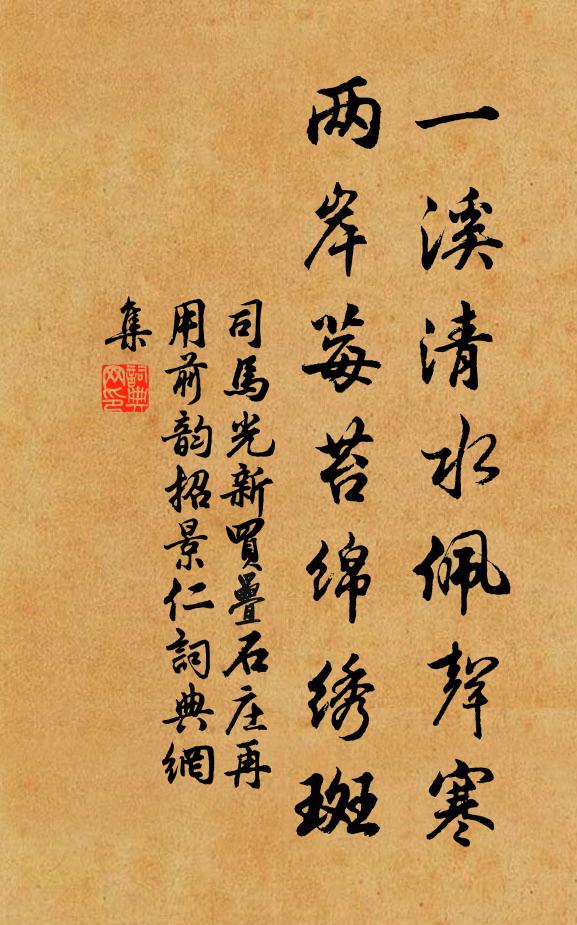 一溪清水佩声寒
两岸莓苔绵绣斑
司馬光新買疊石庄再
用前韵招景仁詞典網
集
詞典網印